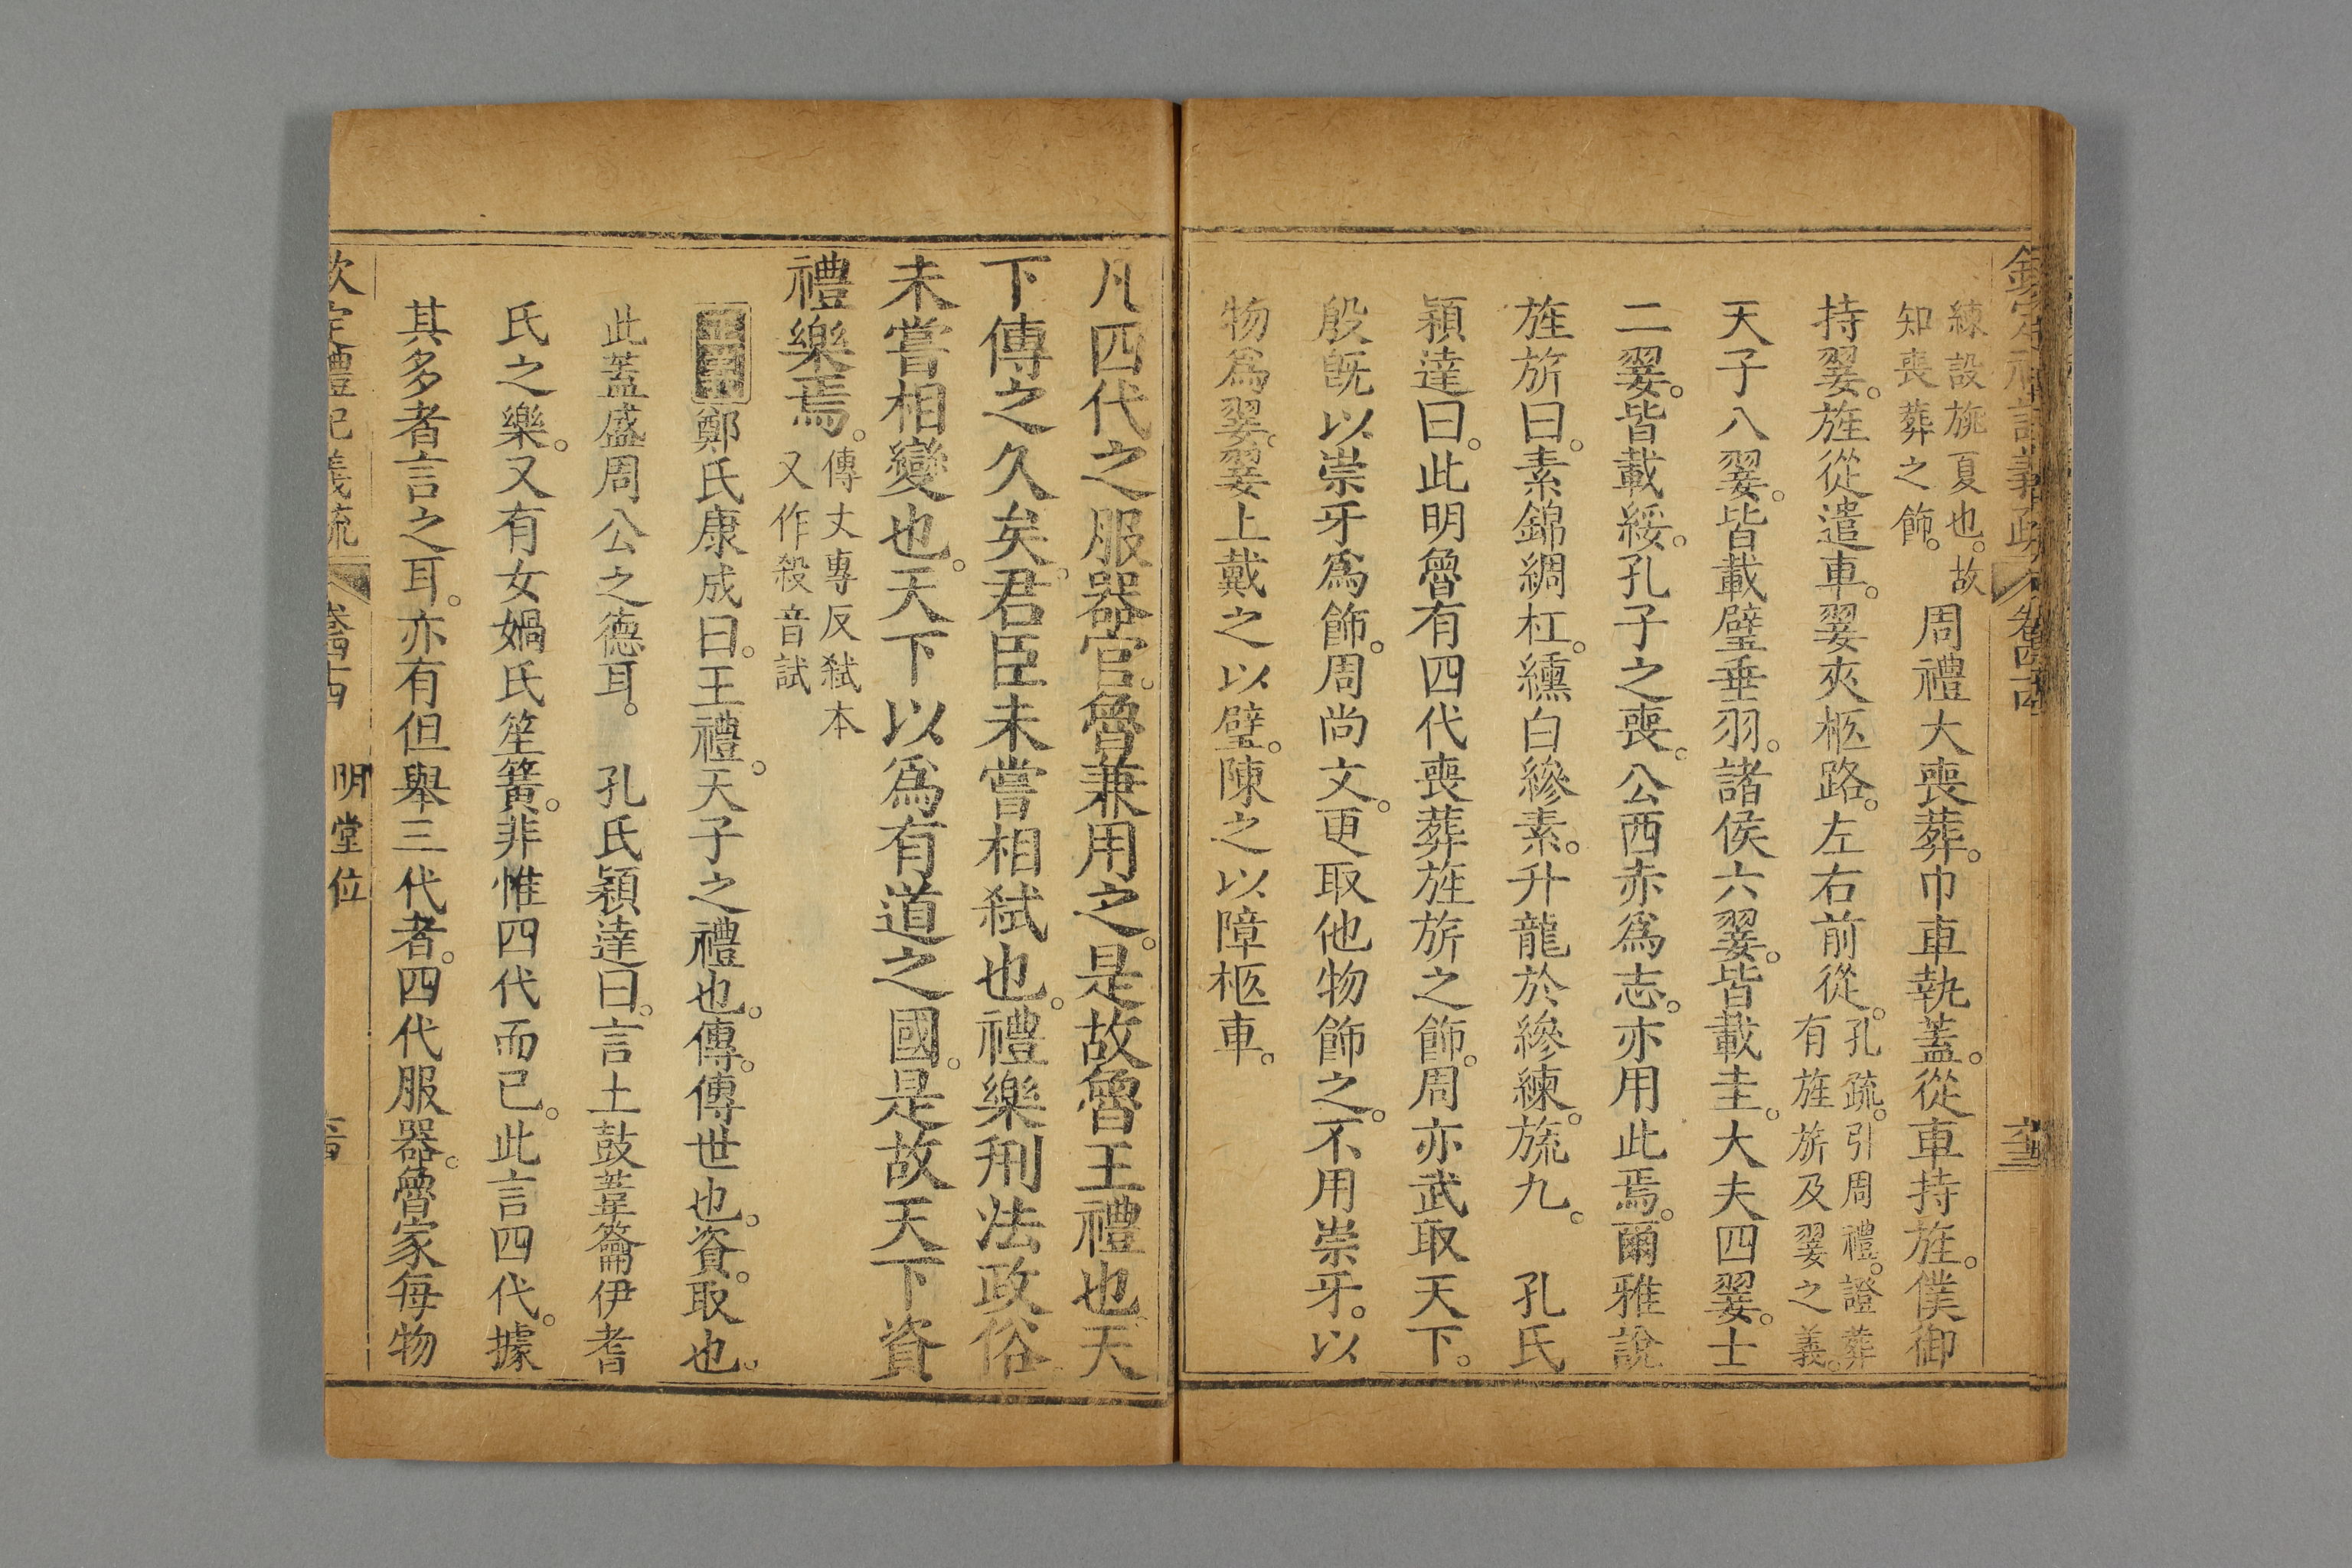 欽定禮記義疏 卷四十四
練設旐夏也。故
知喪葬之飾。
周禮大喪葬。巾車執蓋。從車持旌。僕御
持翣。旌從遣車。翣夾柩路。左右前從。
孔疏。引周禮。證葬
有旌旂及翣之義。
天子八翣。皆載璧垂羽。諸侯六翣。皆載圭。大夫四翣。士
二翣。皆載綏。孔子之喪。公西赤爲志。亦用此焉。爾雅說
旌旂曰。素錦綢杠。纁白縿素。升龍於縿練。旒九。 孔氏
穎達曰。此明魯有四代喪葬旌旂之飾。周亦武取天下。
殷旣以崇牙爲飾。周尚文。更取他物飾之。不用崇牙。以
物爲翣。翣上戴之以璧。陳之以障柩車。
凡四代之服器官。魯兼用之。是故魯王禮也。天
下傳之久矣。君臣未嘗相弒也。禮樂刑法政俗
未嘗相變也。天下以爲有道之國。是故天下資
禮樂焉。
傳丈專反弒本
又作殺音試
鄭氏康成曰。王禮。天子之禮也。傳。傳世也。資。取也。
此蓋盛周公之德耳。 孔氏穎達曰。言土鼓蕢籥伊耆
氏之樂。又有女媧氏笙簧。非惟四代而已。此言四代。據
其多者言之耳。亦有但舉三代者。四代服器。魯家每物
欽定禮記義疏 卷四十四 明堂位